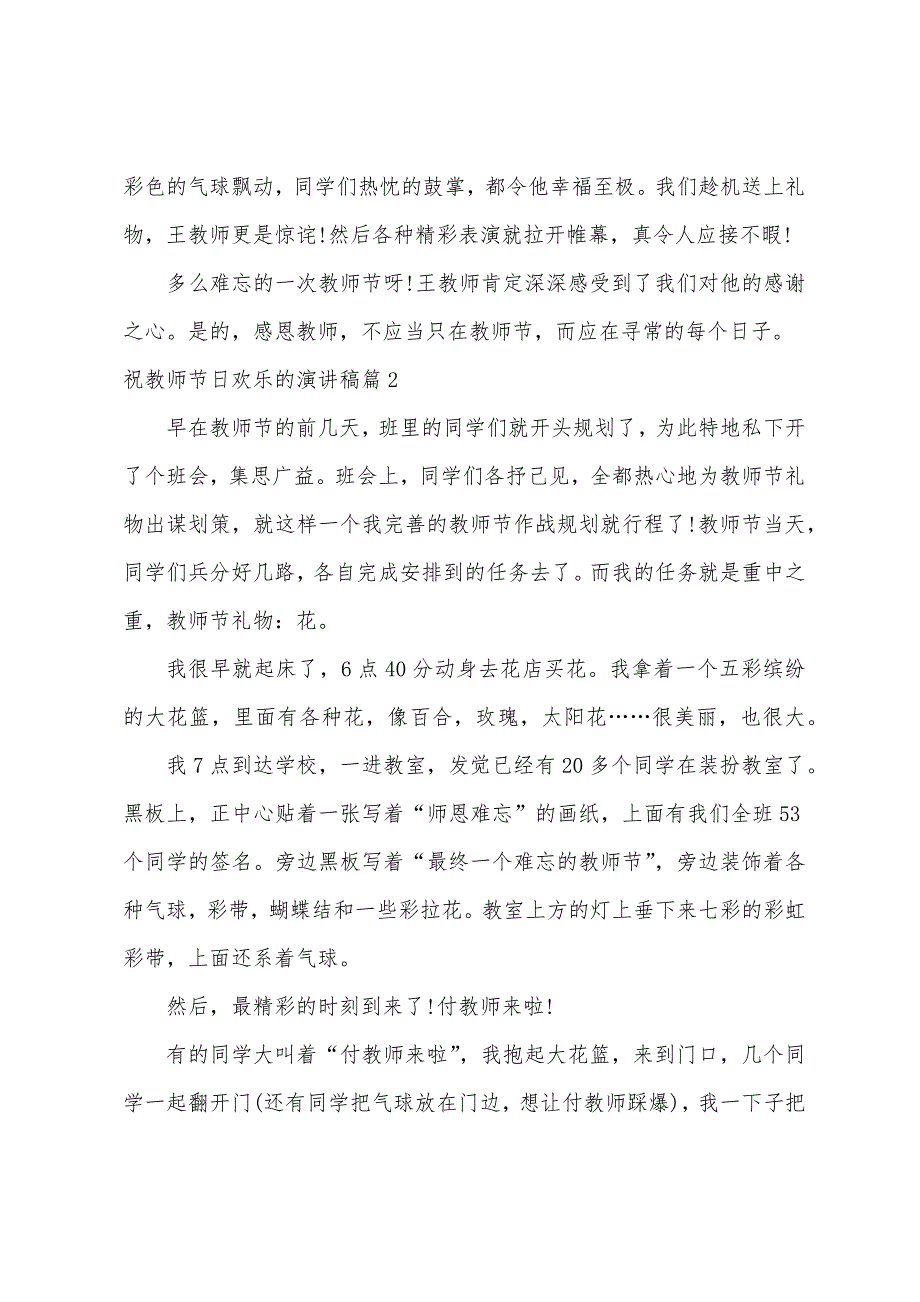 彩色的气球飘动，同学们热忱的鼓掌，都令他幸福至极。我们趁机送上礼
物，王教师更是惊诧!然后各种精彩表演就拉开帷幕，真令人应接不暇!
多么难忘的一次教师节呀!王教师肯定深深感受到了我们对他的感谢
之心。是的，感恩教师，不应当只在教师节，而应在寻常的每个日子。
祝教师节日欢乐的演讲稿篇2
早在教师节的前几天，班里的同学们就开头规划了，为此特地私下开
了个班会，集思广益。班会上，同学们各抒己见，全都热心地为教师节礼
物出谋划策，就这样一个我完善的教师节作战规划就行程了!教师节当天，
同学们兵分好几路，各自完成安排到的任务去了。而我的任务就是重中之
重，教师节礼物：花。
我很早就起床了，6点40分动身去花店买花。我拿着一个五彩缤纷
的大花篮，里面有各种花，像百合，玫瑰，太阳花……很美丽，也很大。
我7点到达学校，一进教室，发觉已经有20多个同学在装扮教室了。
黑板上，正中心贴着一张写着“师恩难忘”的画纸，上面有我们全班53
个同学的签名。旁边黑板写着“最终一个难忘的教师节”，旁边装饰着各
种气球，彩带，蝴蝶结和一些彩拉花。教室上方的灯上垂下来七彩的彩虹
彩带，上面还系着气球。
然后，最精彩的时刻到来了!付教师来啦!
有的同学大叫着“付教师来啦”，我抱起大花篮，来到门口，几个同
学一起翻开门(还有同学把气球放在门边，想让付教师踩爆)，我一下子把